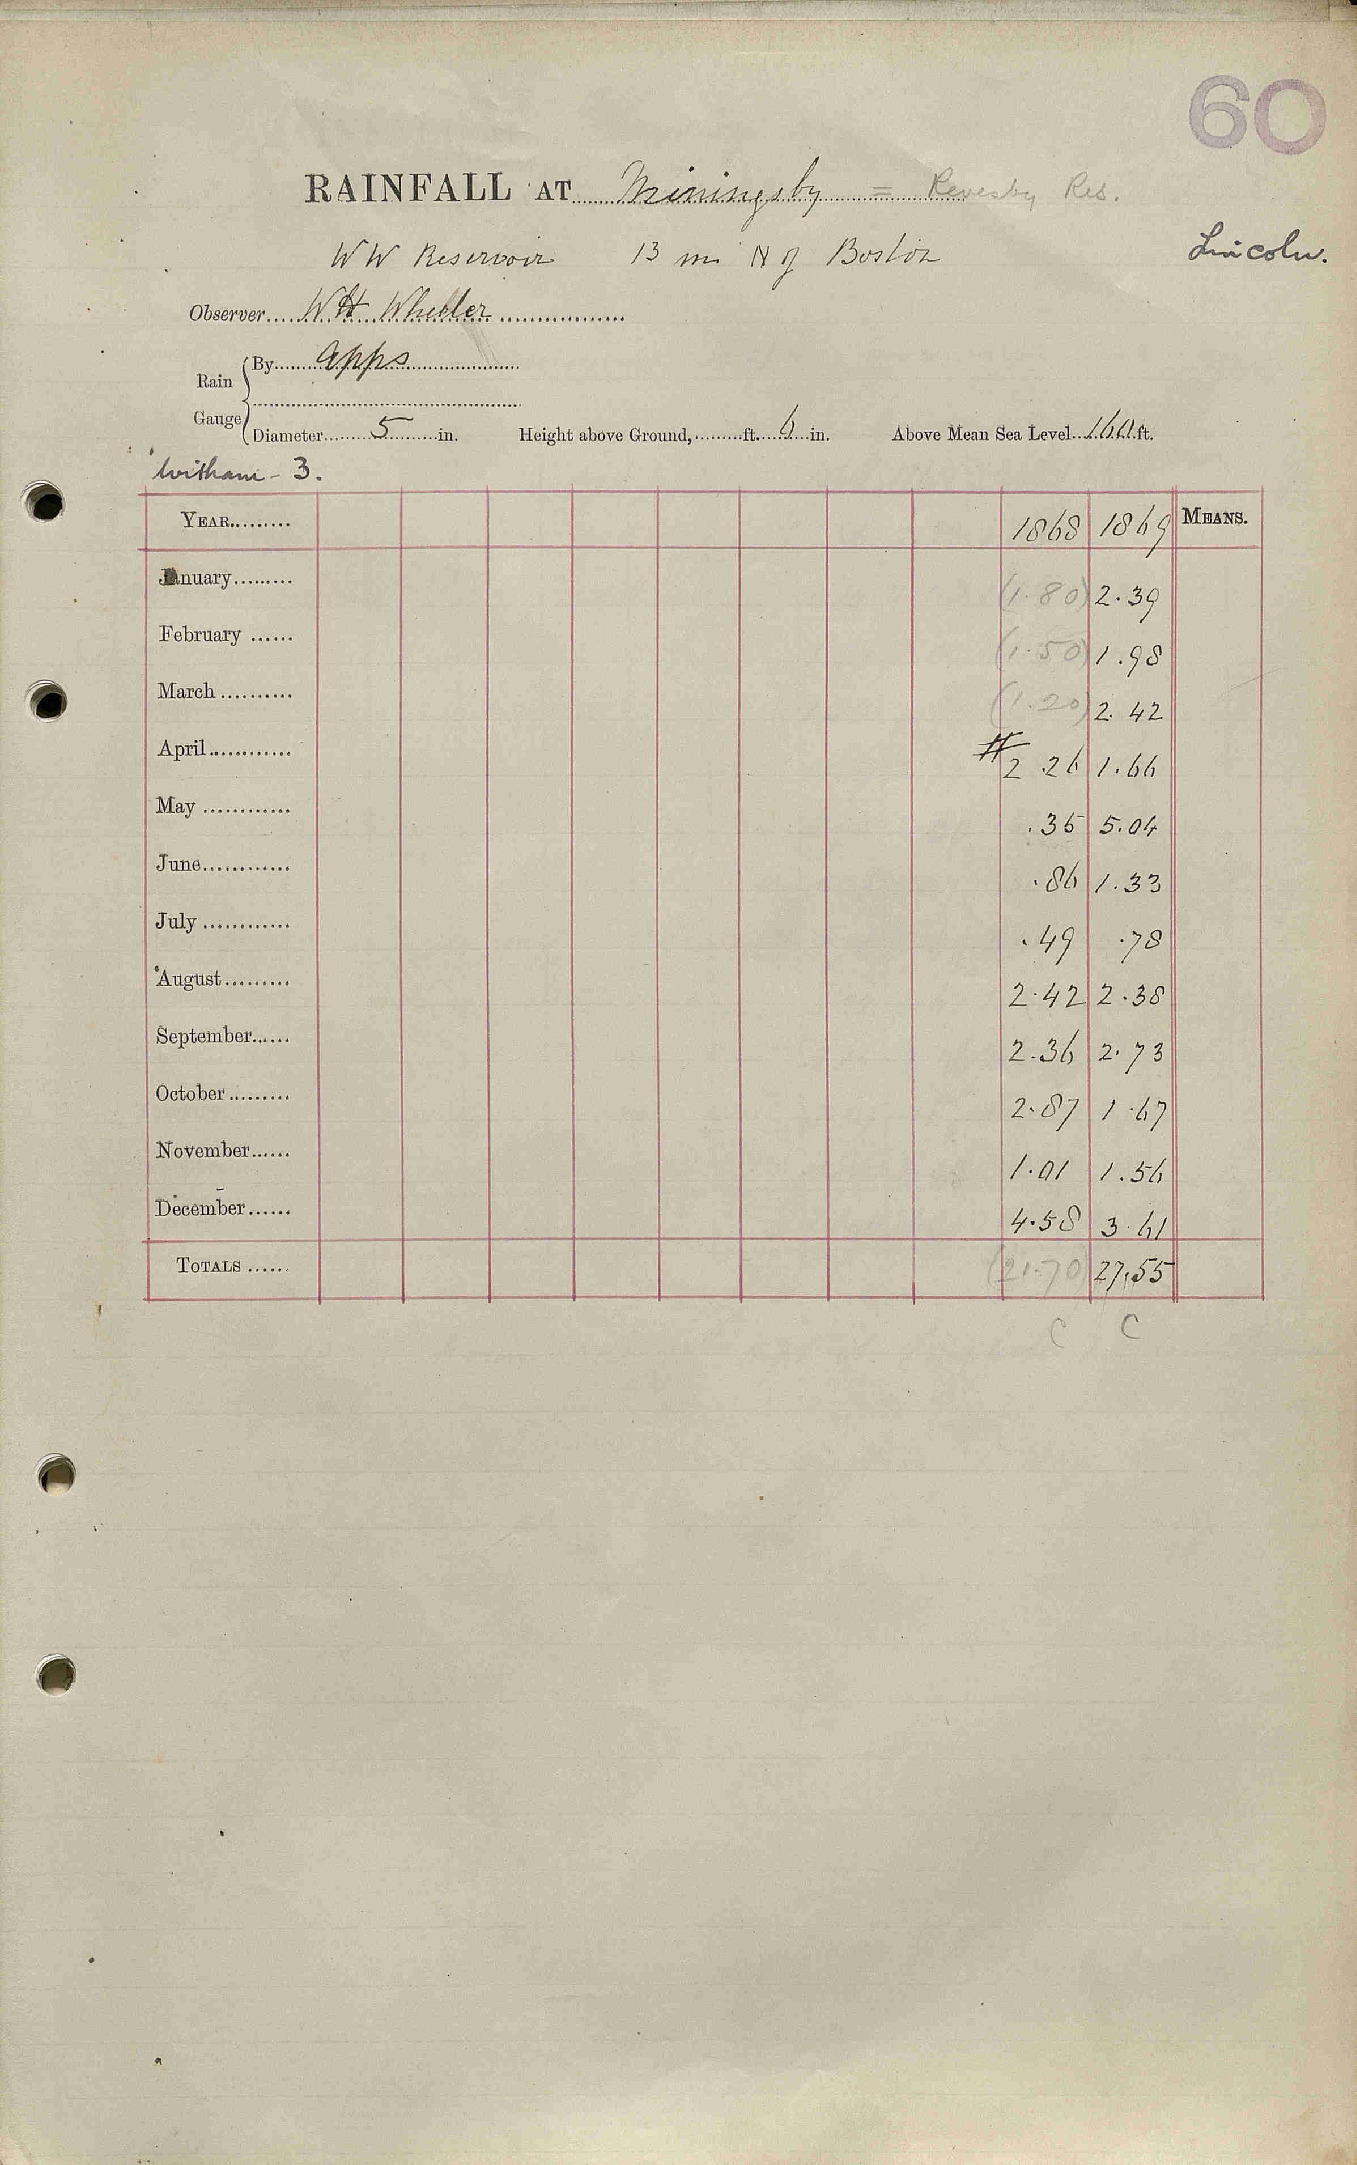 60
RAINFALL AT Miningsby = Revesby Res.
WW Reservoir 13 mi N of Boston Lincoln.
Observer.....W H Wheeler
Rain Gauge
By.....Apps
Diameter.....5.....in. Height above Ground,.....ft.....6.....in. Above Mean Sea Level...160.ft.
Witham - 3.
YEAR......... 1868 1869 MEANS.
January......... (1.80) 2.39
February ...... (1.50) 1.98
March.......... (1.20) 2.42
April............ # 2.26 1.66
May ............ .35 5.04
June............ .86 1.33
July ............ .49 .78
August......... 2.42 2.38
September...... 2.36 2.73
October......... 2.87 1.67
November...... 1.01 1.56
December...... 4.58 3.61
TOTALS ...... (21.70) 27.55
C C